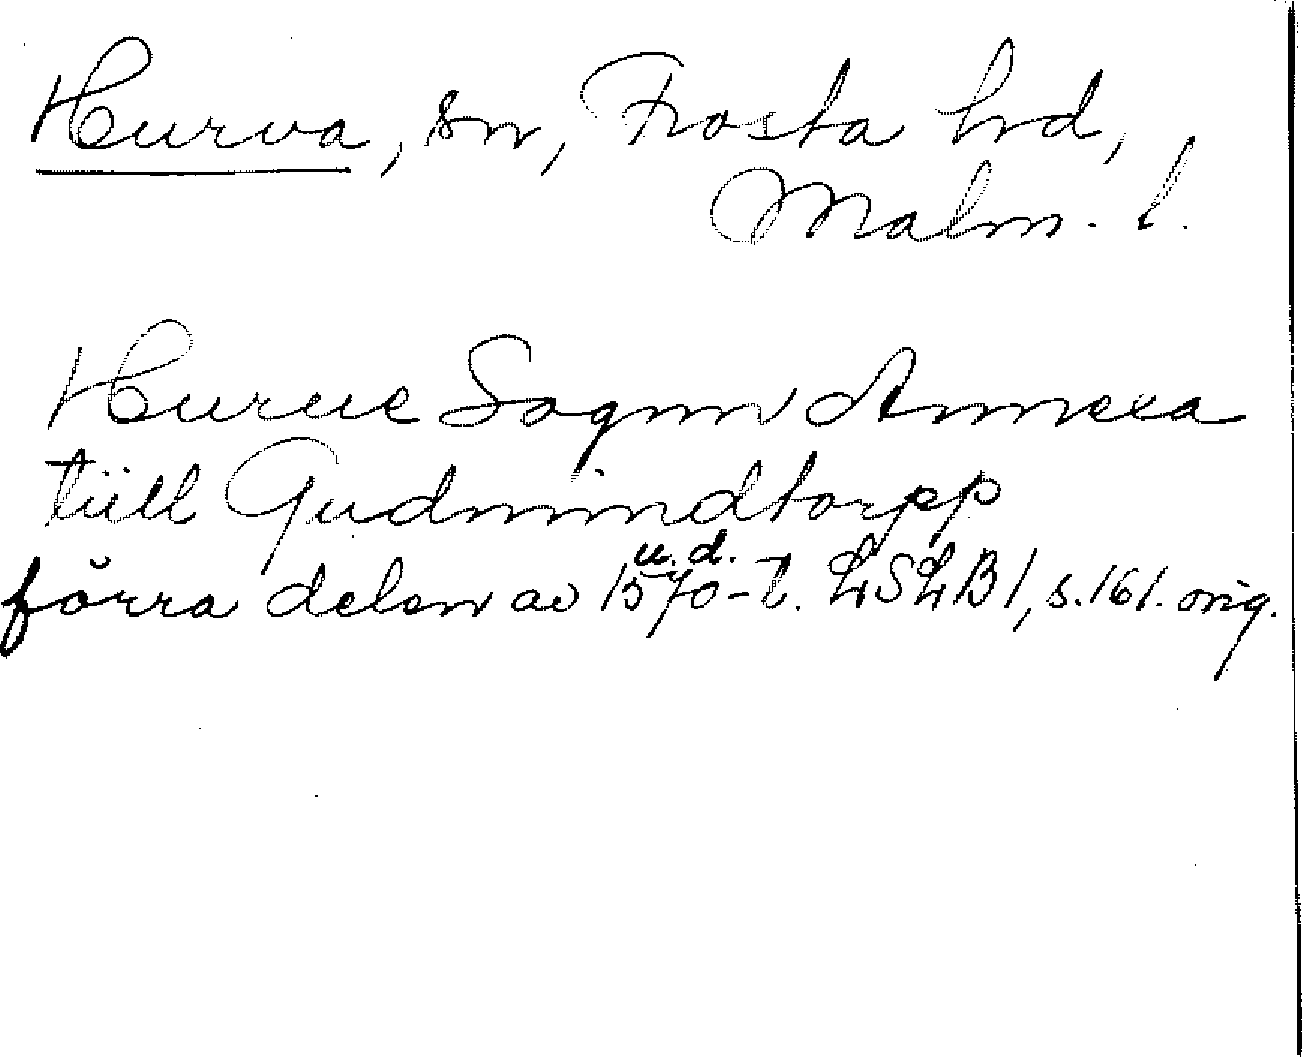 Hurva, sn, Frosta hrd,
Malm. l.
Hurue Sognn Annexa
tiill Gudmindtorpp
u. d.
förra delen av 1570-t. LSLB1, s. 161. orig.